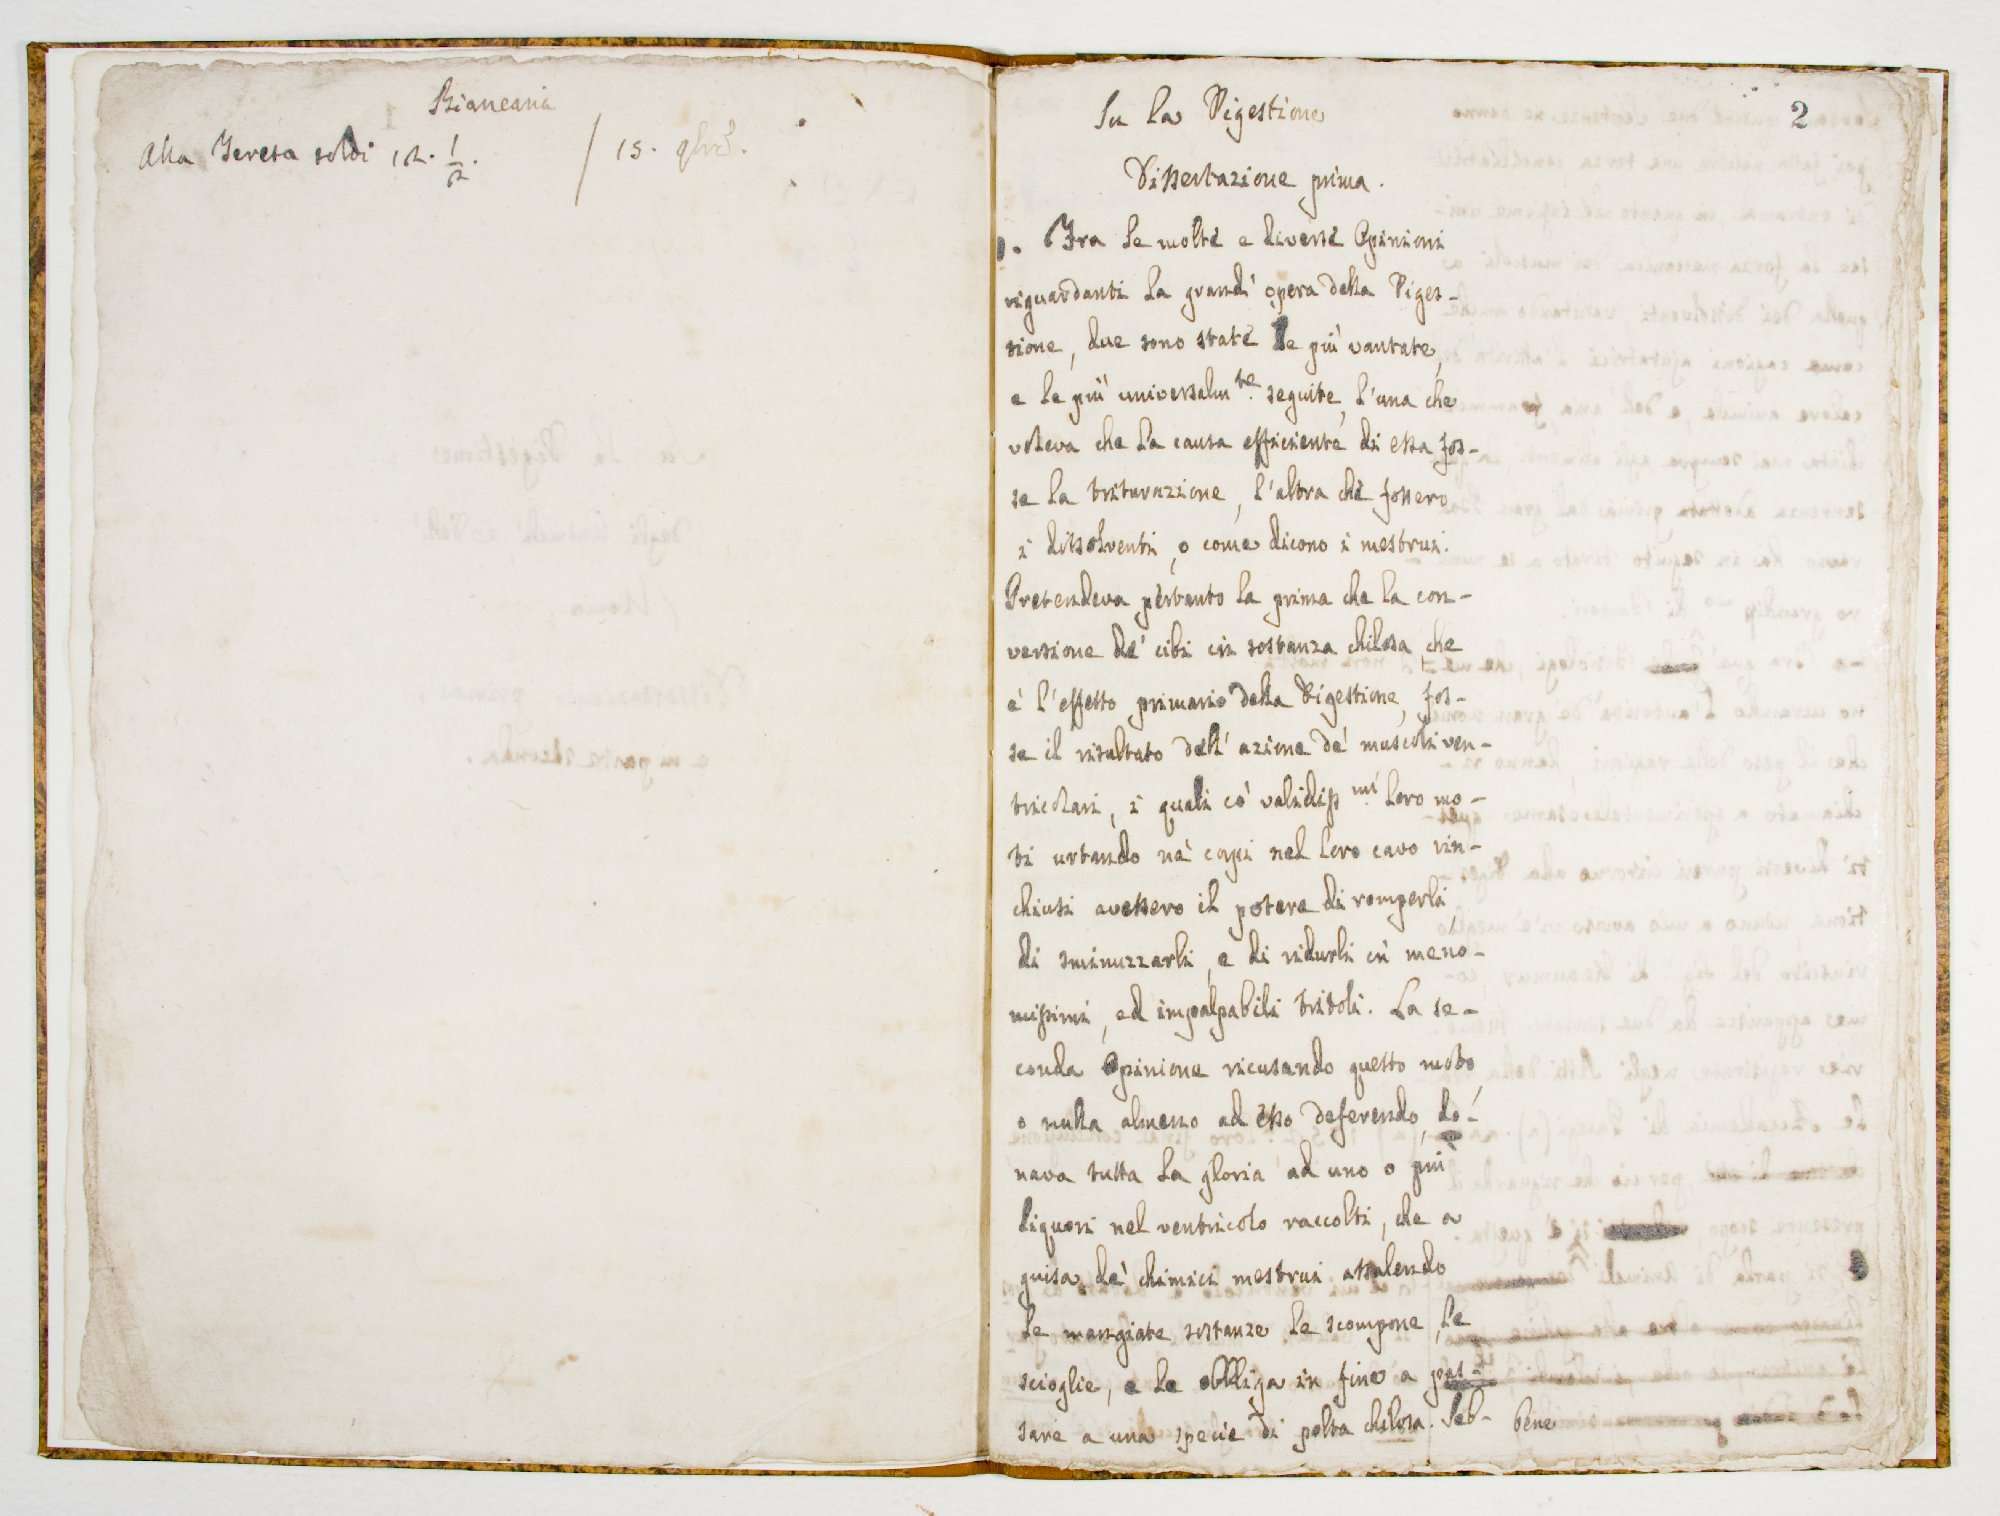 Biancaria
Alla Teresa soldi 12. 1/2. / 15. 9bre.
2
Su la Digestione
Dissertazione prima.
Fra le molte e diverse Opinioni
riguardanti la grand' opera della Diges-
tione, due sono state le più vantate,
e le più universalmte. seguite, l'una che
voleva che la causa efficiente di essa fos-
se la triturazione, l'altra che fossero
i dissolventi, o come dicono i mestrui.
Pretendeva pertanto la prima che la con-
versione de' cibi in sostanza chilosa, che
è l'effetto primario della Digestione, fos-
se il risultato dell' azione de' muscoli ven-
tricolari, i quali co' validissmi. loro mo-
ti urtando ne' corpi nel loro cavo rin-
chiusi avessero il potere di romperli,
di sminuzzarli, e di ridurli in meno-
missimi, ed impalpabili tritoli. La se-
conda Opinione ricusando questo moto,
o nulla almeno ad esso deferendo, do-
nava tutta la gloria ad uno o più
liquori nel ventricolo raccolti, che a
guisa de' chimici mestrui assalendo
le mangiate sostanze le scompone, le
scioglie, e le obbliga in fine a pas-
sare a una specie di polta chilosa. Seb-
bene